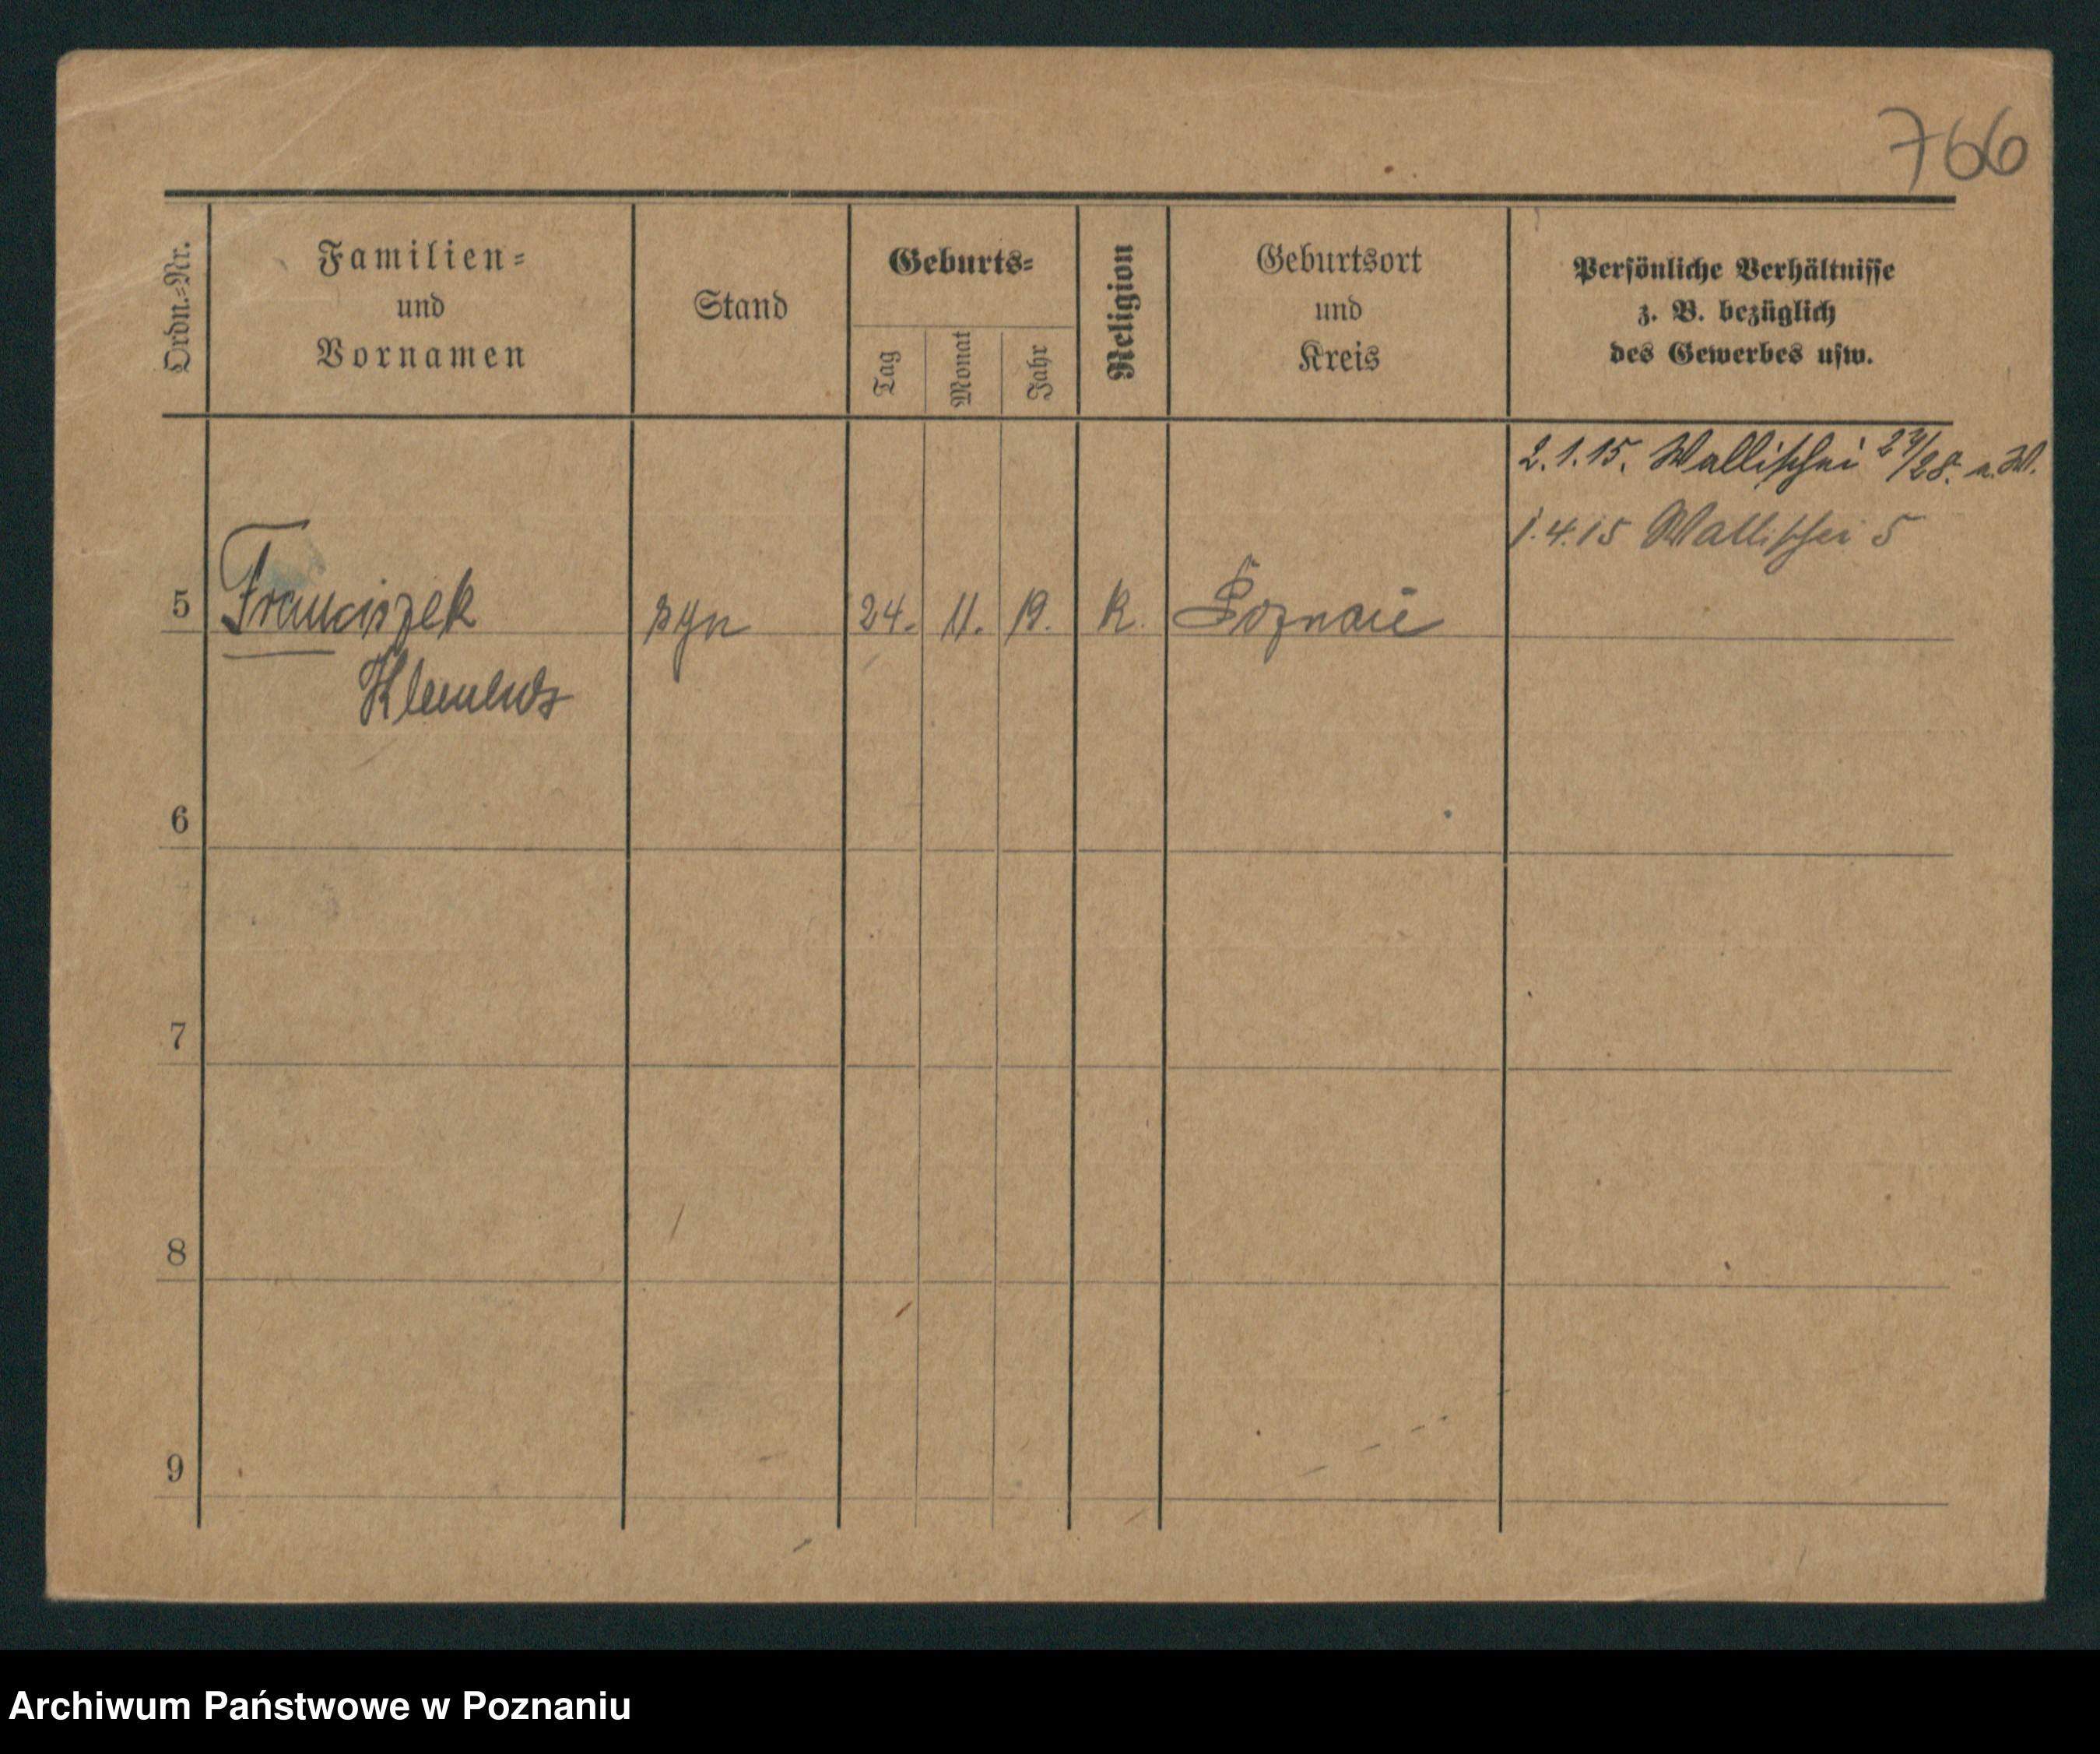 766
Ordn.-Nr.
Familien-
und
Vornamen
Stand
Geburts-
Tag
Monat
Jahr
Religion
Geburtsort
und
Kreis
Persönliche Verhältnisse
z. B. bezüglich
des Gewerbes usw.
2.1.15. Wallischei 27/28. a.W.
1.4.15 Wallischei 5
5 Franciszek syn 24. 11. 19. K. Poznań
Klemens
6
7
8
9
Archiwum Państwowe w Poznaniu